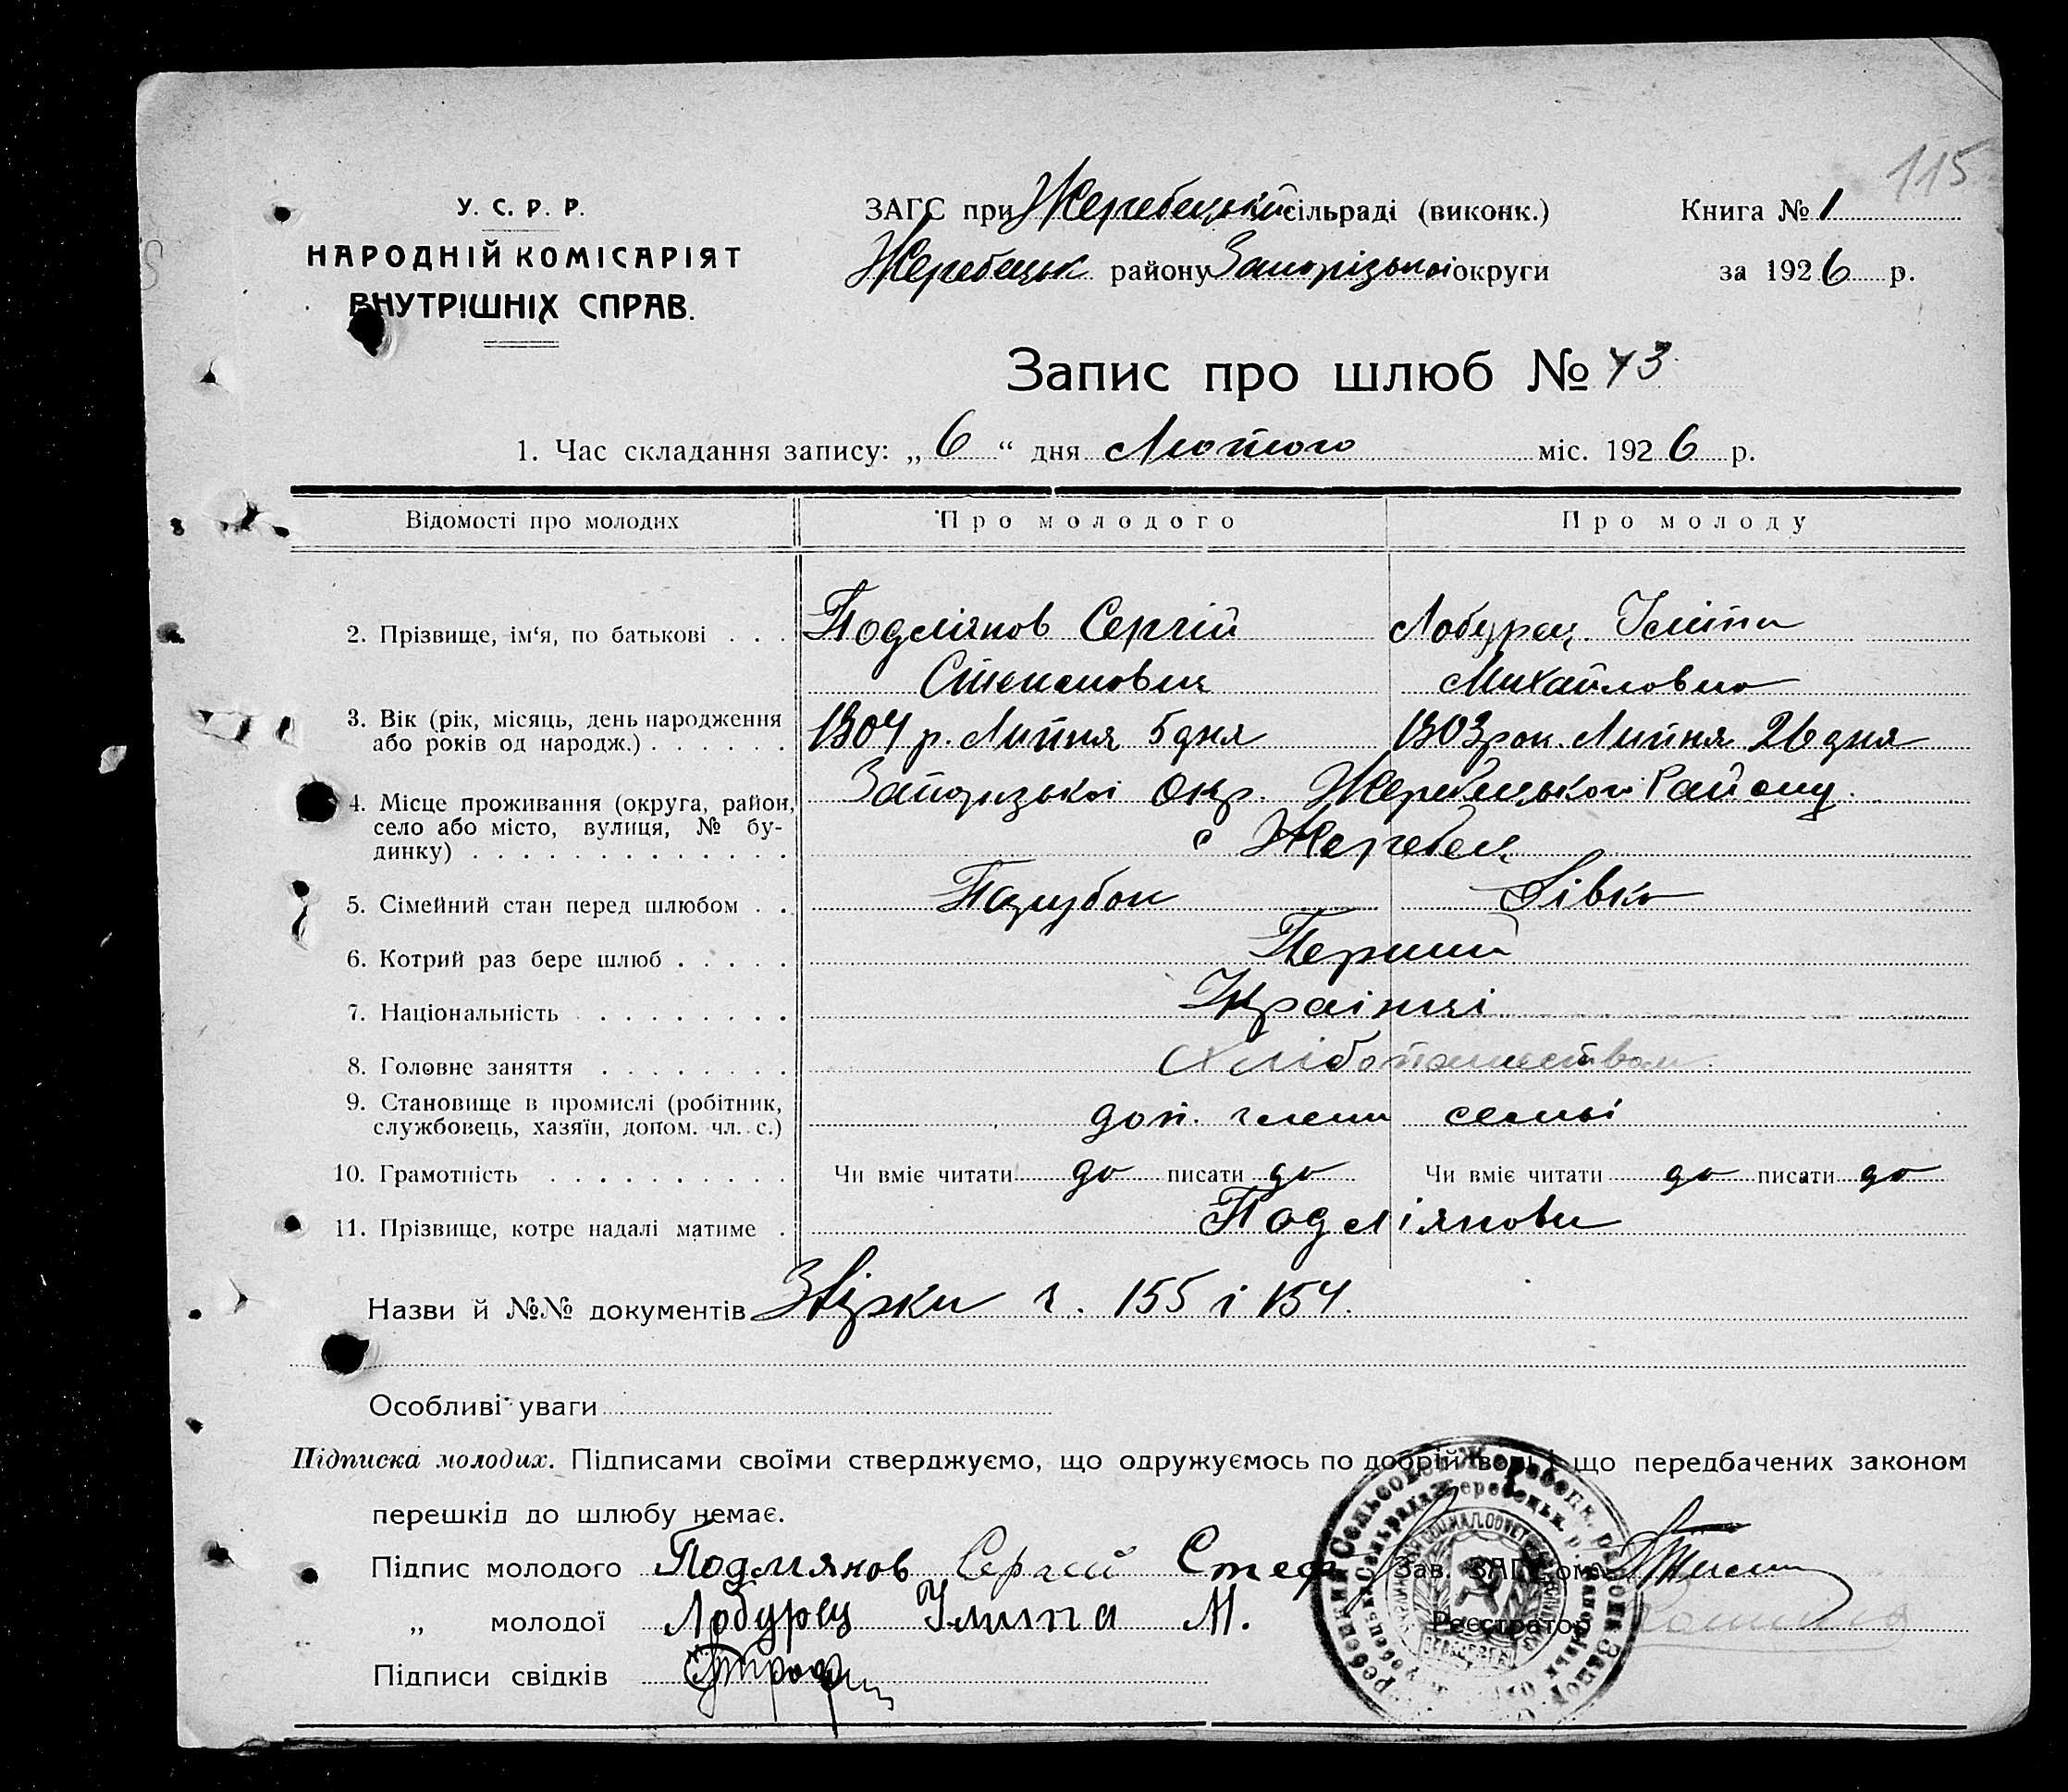 115
У. С. Р. Р.
НАРОДНІЙ КОМІСАРІЯТ
ВНУТРІШНІХ СПРАВ.
ЗАГС при Жеребецькій сільраді (виконк.)
Жеребецьк району Запорізької округи
Книга № 1
за 1926 р.
Запис про шлюб № 43
1. Час складання запису: „ 6 “ дня Лютого міс. 1926 р.
Відомості про молодих
Про молодого
Про молоду
2. Прізвище, ім‘я, по батькові . . .
Подліянов Сергій
Степанович
Лобурец Уліта
Михайловна
3. Вік (рік, місяць, день народження
або років од народж.) . . . . . .
1904 р. Липня 5 дня
1903 рок. Липня 26 дня
4. Місце проживання (округа, район,
село або місто, вулиця, № бу-
динку) . . . . . . . . . . . . .
Запорізької Окр. Жеребецького Району
с Жеребец
5. Сімейний стан перед шлюбом . .
Парубок
Дівка
6. Котрий раз бере шлюб . . . . .
Перший
7. Національність . . . . . . . .
Українці
8. Головне заняття . . . . . . . .
Хліборашеством
9. Становище в промислі (робітник,
службовець, хазяїн, допом. чл. с.)
доп. члени семьі
10. Грамотність . . . . . . . . . .
Чи вміє читати да писати да
Чи вміє читати да писати да
11. Прізвище, котре надалі матиме .
Подліянови
Назви й №№ документів Звірки ч. 155 і 154.
Особливі уваги
Підписка молодих. Підписами своїми стверджуємо, що одружуємось по добрій волі і що передбачених законом
перешкід до шлюбу немає.
Підпис молодого Подлиянов Сергей Стеф
„ молодої Лобурец Улита М.
Підписи свідків
Зав. ЗАГС'ом
Реєстратор